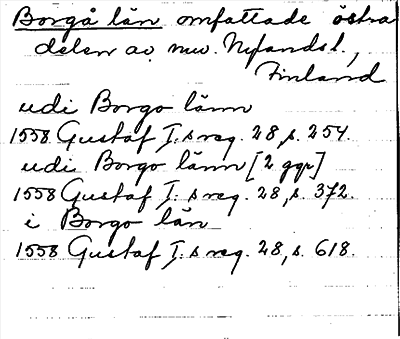 Borgå län omfattade östra
delen av nuv. Nylandsl.,
Finland
udi Borgo länn
1558 Gustaf I:s reg. 28, s. 254.
udi Borgo länn [2 ggr]
1558 Gustaf I:s reg. 28, s. 372.
i Borgo län
1558 Gustaf I:s reg. 28, s. 618.